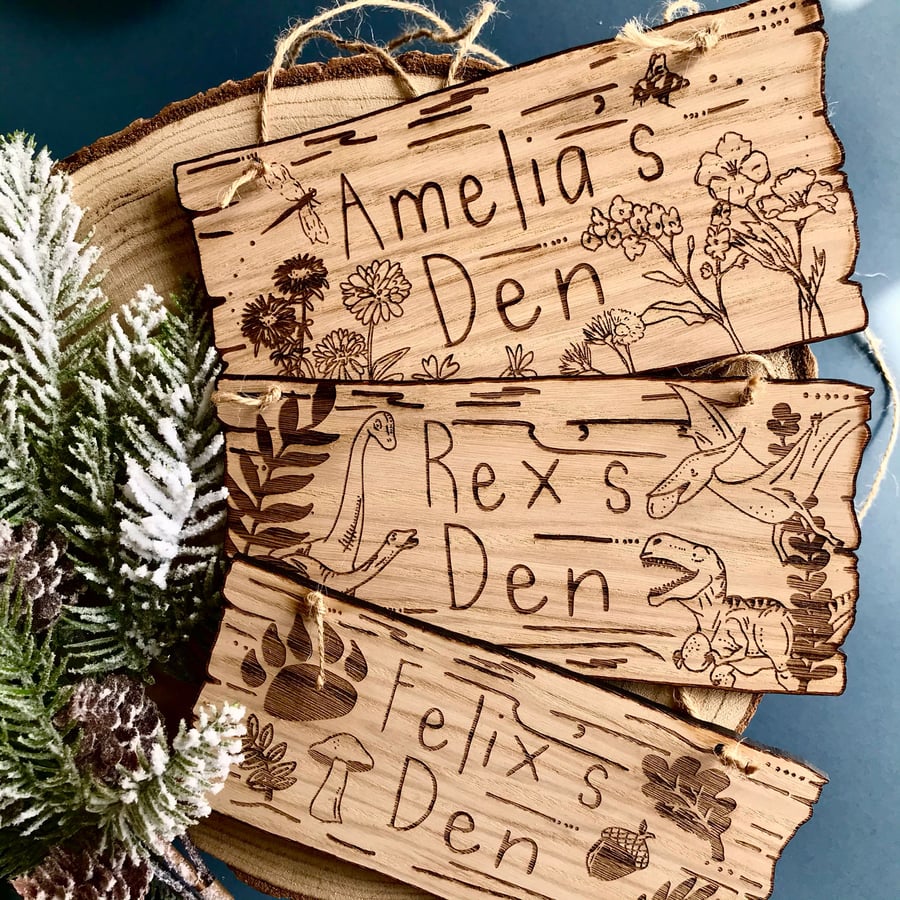 Amelia's
Den
Rex's
Den
Felix's
Den